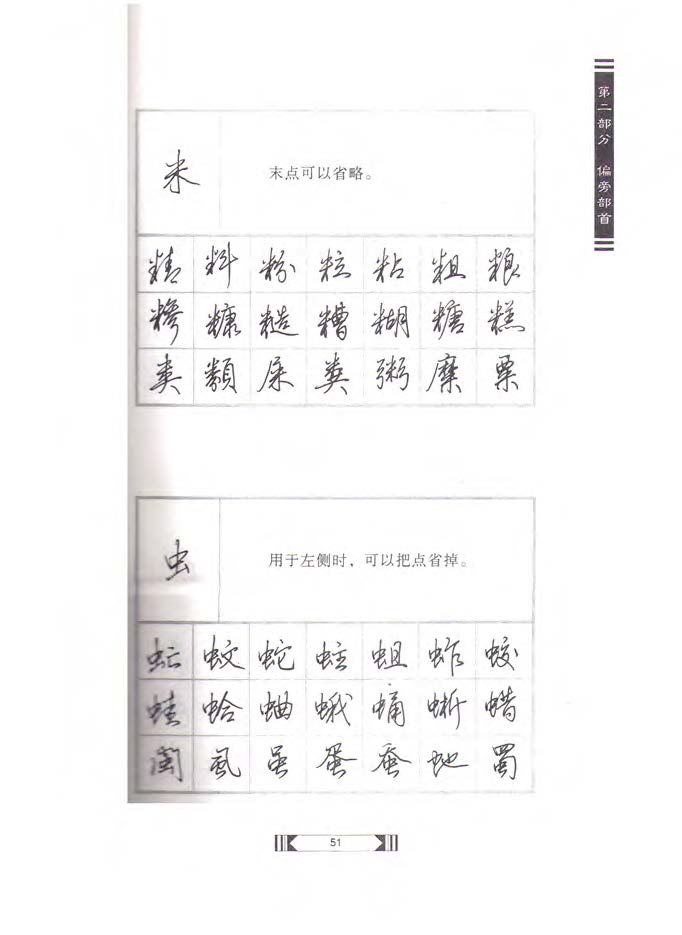 第二部分 偏旁部首
米
末点可以省略。
精 料 粉 粒 粘 粗 粮
糁 糠 糙 糟 糊 糖 糕
类 颣 屎 粪 粥 糜 粟
虫
用于左侧时，可以把点省掉。
虻 蚊 蛇 蛀 蛆 蚱 蛟
蛙 蛤 蛐 蛾 蛹 蜥 蜡
闽 虽 蛋 蚕 蜀
51